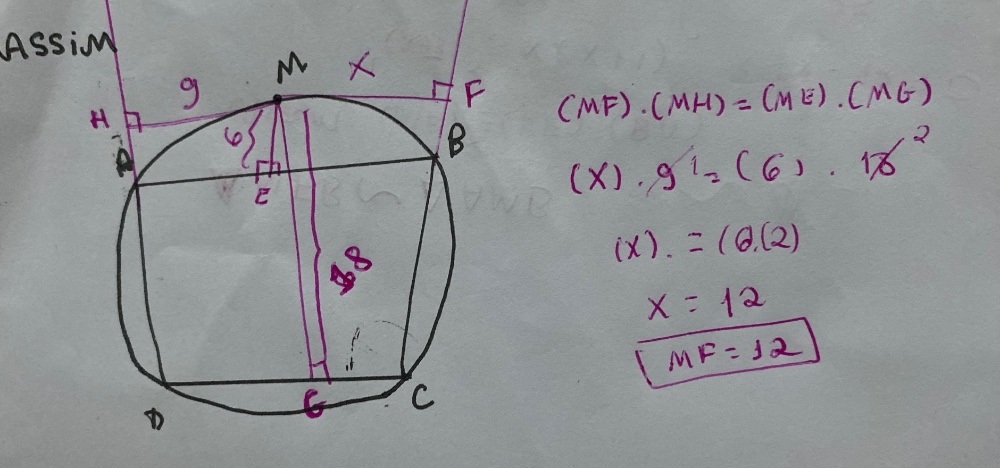 ASSIM
M
X
9
H
F
A
B
6
E
18
G
D
C
(MF).(MH)=(ME).(MG)
(X).9 1=(6).18 2
(X).=(6.(2)
X=12
MF=12